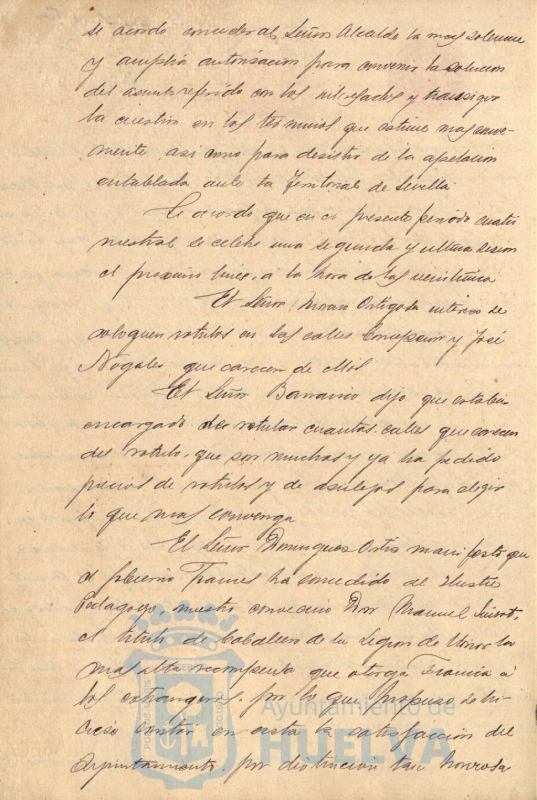 se acordo conceder al Señor Alcalde la mas solemne
y amplia autorisacion para convenir la solucion
del asunto referido con los interesados y transigir
la cuestion en los terminos que estime mas conve-
niente asi como para desistir de la apelacion
entablada ante la Territorial de Sevilla
Se acordo que en el presente periodo cuatri
mestral se celebre una segunda y ultima sesion
el proximo lunes a la hora de las veintiuna
El Señor Moreno Ortigosa intereso se
coloquen rotulos en las calles Concepcion y José
Nogales que carecen de ellos
El Señor Barranco dijo que estaba
encargado de rotular cuantas calles que carecen
del rotulo, que son muchas y ya ha pedido
precios de rotulos y de asulejos para elegir
lo que mas convenga
El Señor Domingues Ortis manifesto que
el Gobierno Frances ha concedido al Ilustre
Pedagogo, nuestro convecino Don Manuel
el titulo de Caballero de la Legion de Honor la
mas alta recompensa que otorga Francia á
los extrangeros, por lo que propuso se hi-
ciese constar en acta la satisfaccion del
Ayuntamiento por distincion tan honrosa
Ayuntamiento de
HUELVA